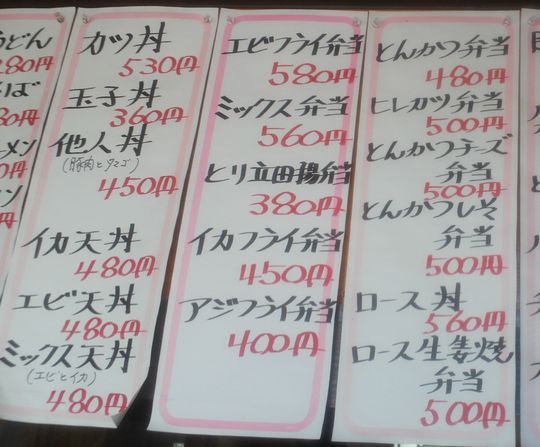 うどん
280円
カツ丼
530円
玉子丼
360円
他人丼
(豚肉とタマゴ)
450円
イカ天丼
480円
エビ天丼
480円
ミックス天丼
(エビとイカ)
480円
エビフライ弁当
580円
ミックス弁当
560円
とり立田揚弁当
380円
イカフライ弁当
450円
アジフライ弁当
400円
とんかつ弁当
480円
ヒレカツ弁当
500円
とんかつチーズ
弁当
500円
とんかつしそ
弁当
500円
ロース丼
560円
ロース生姜焼
弁当
500円